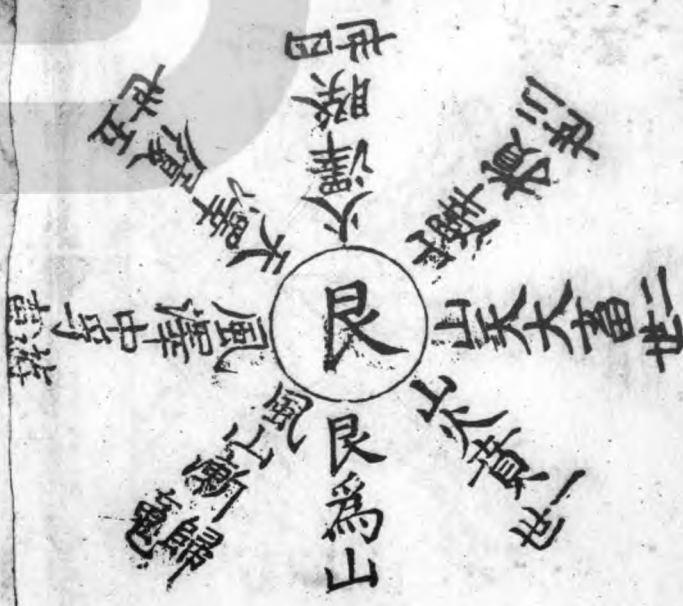 艮
艮為山
山火賁
一世
山天大畜
二世
山澤損
三世
火澤睽
四世
天澤履
五世
風澤中孚
游魂
風山漸
歸魂